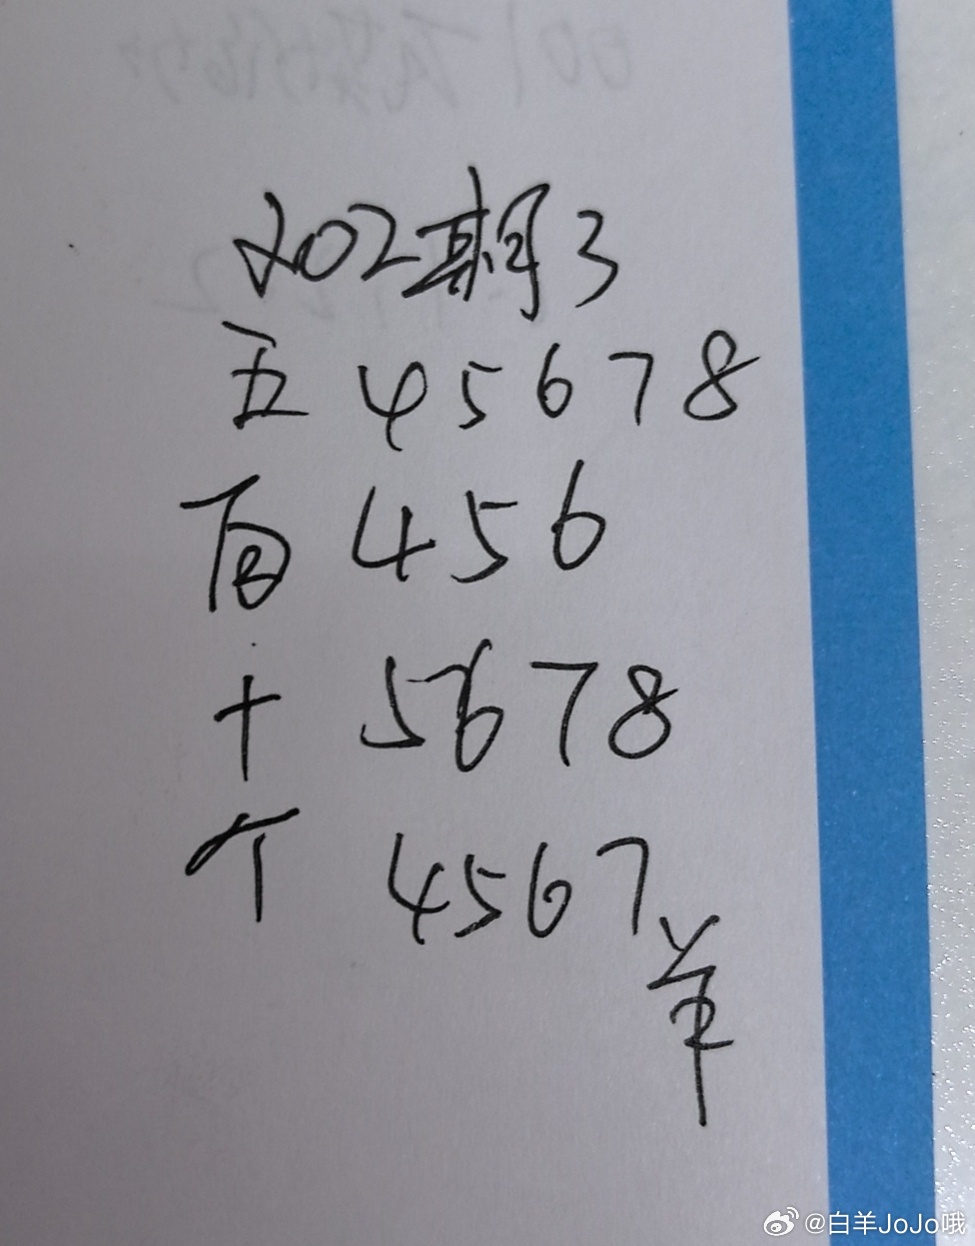 202期3
五 45678
百 456
十 5678
个 4567
羊
@白羊JoJo哦